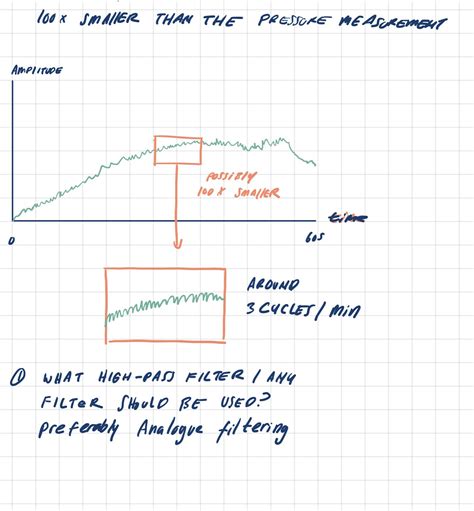 100X SMALLER THAN THE PRESSURE MEASUREMENT
AMPLITUDE
POSSIBLY
100X SMALLER
0
60s
time
AROUND
3 CYCLES/MIN
① WHAT HIGH-PASS FILTER / ANY
FILTER SHOULD BE USED?
Preferably Analogue filtering